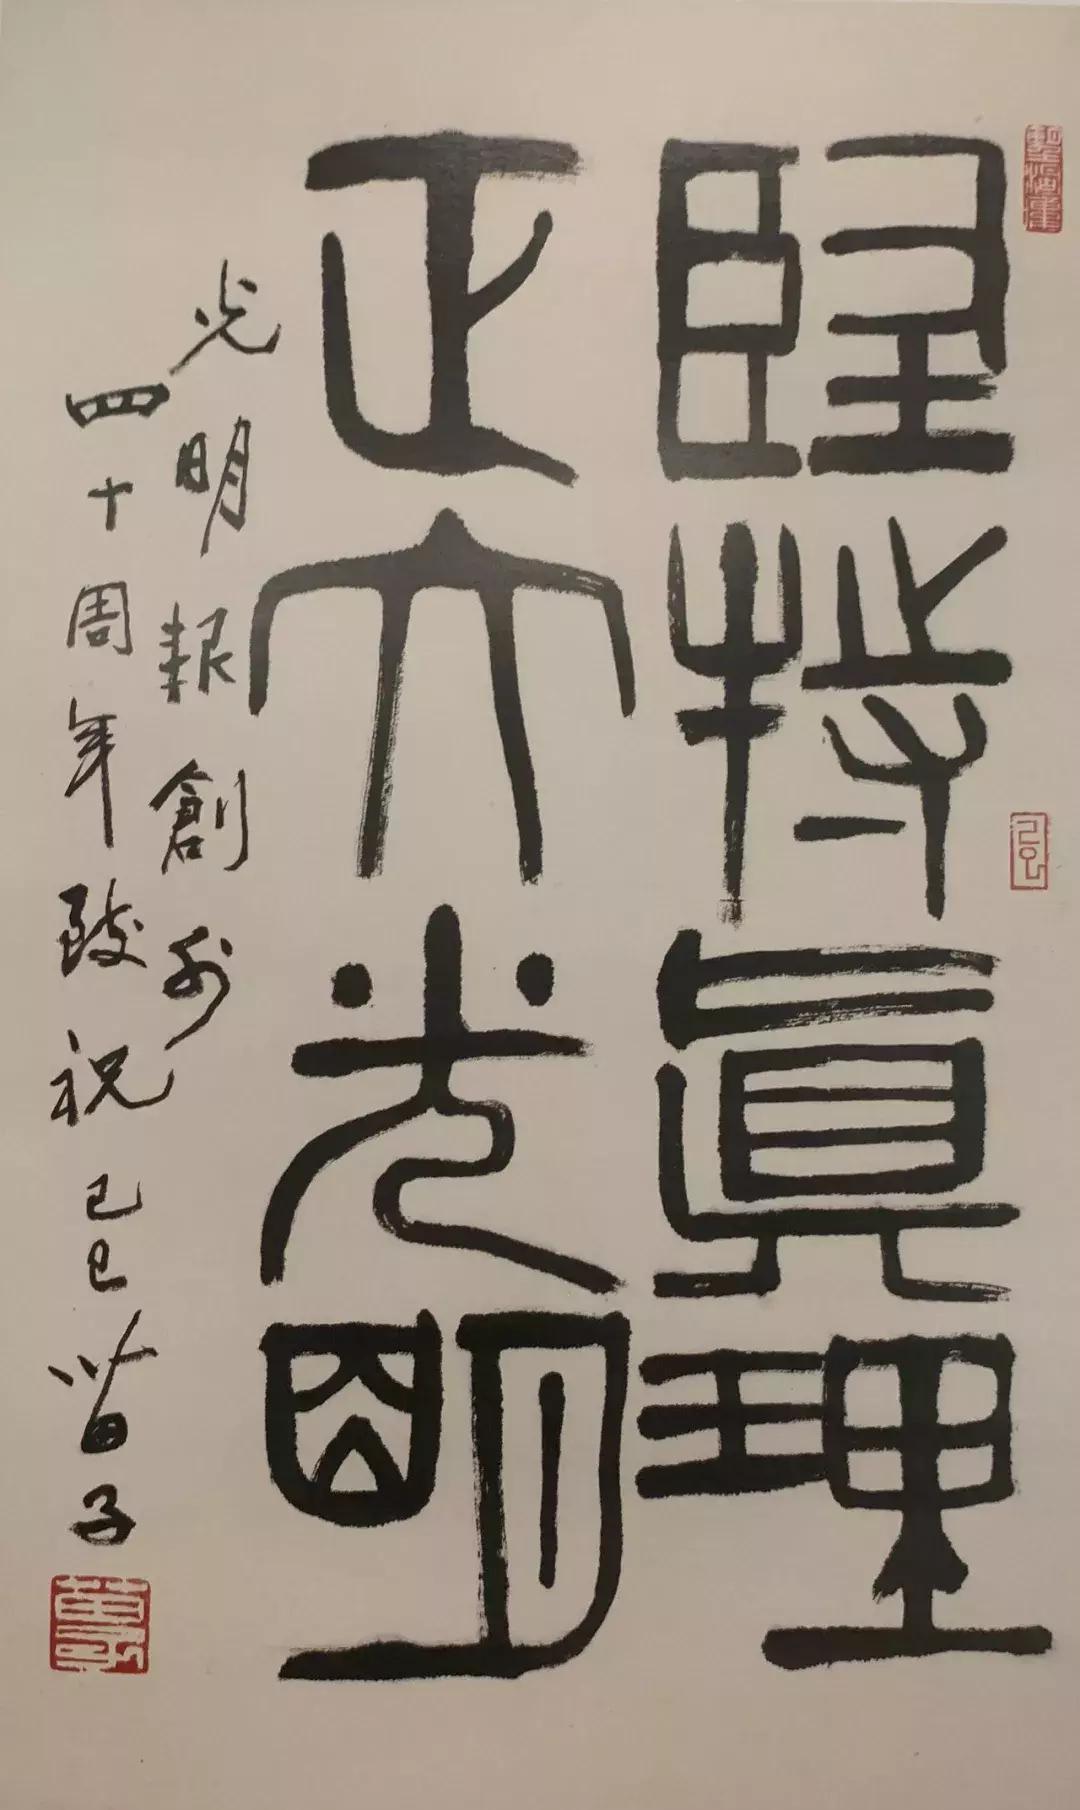 堅持真理
正大光明
光明報創刊
四十周年致祝 己巳 苗子
苗子